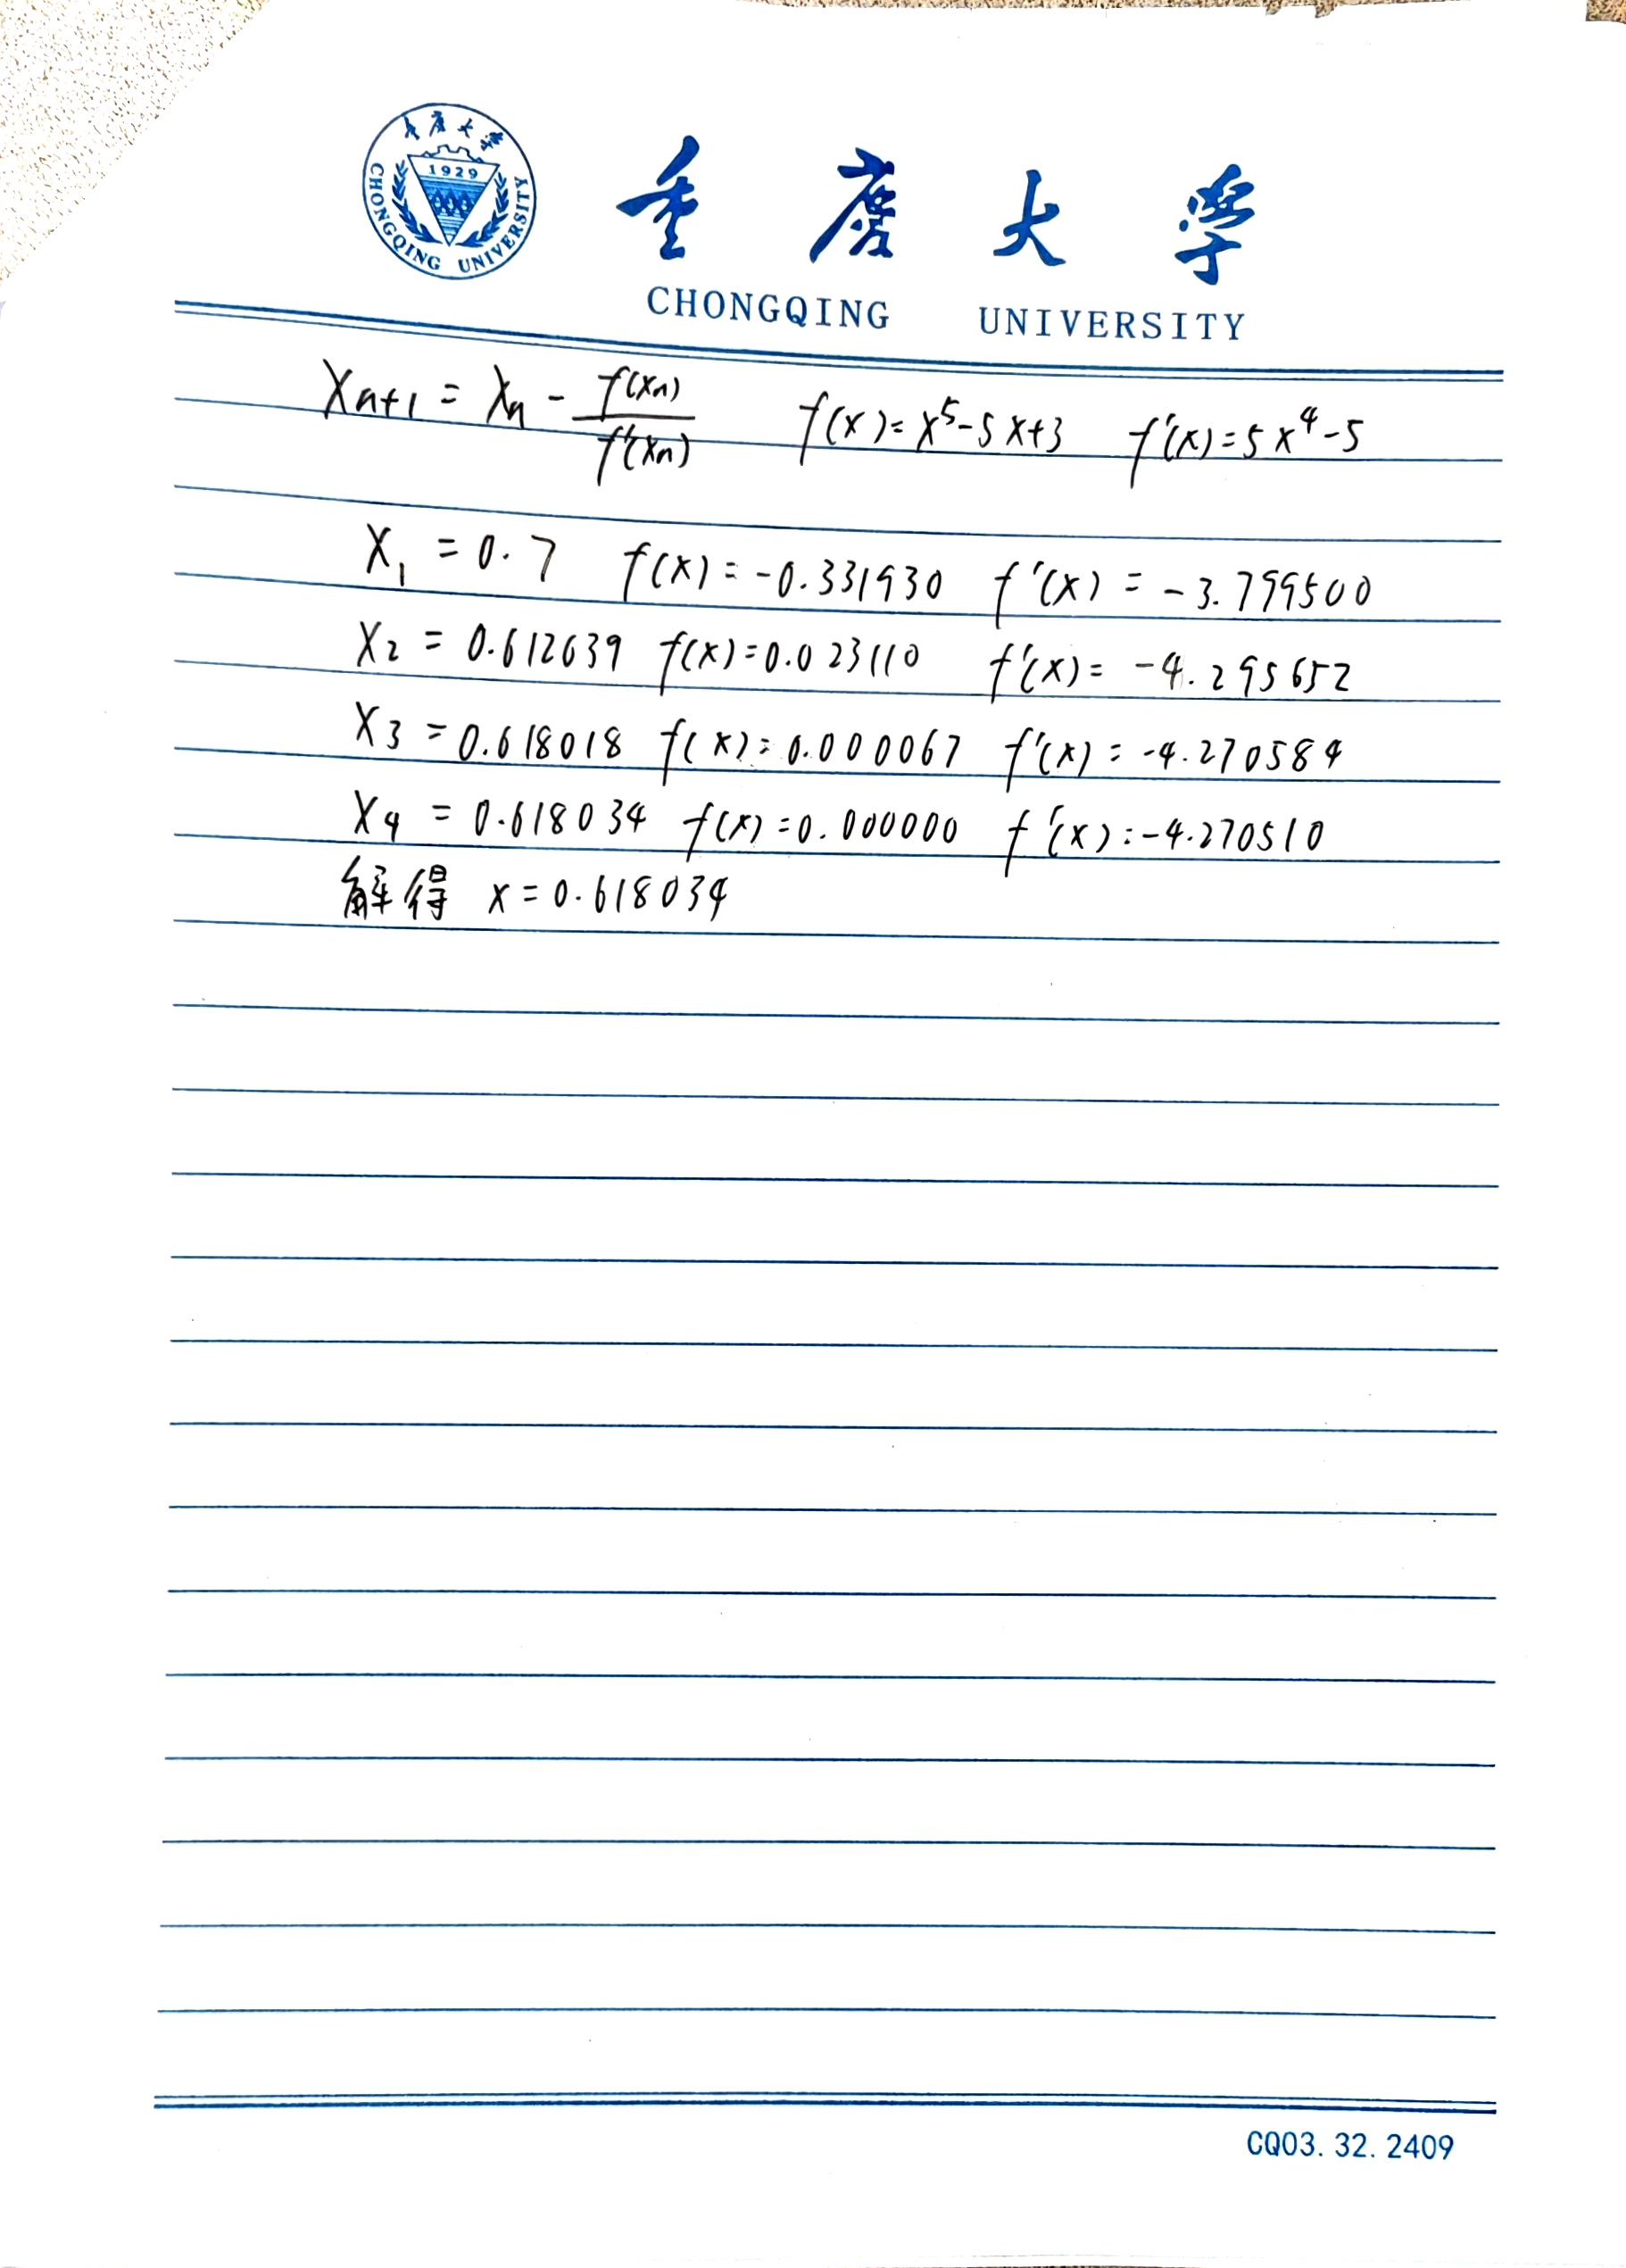 重庆大学
1929
CHONGQING UNIVERSITY
重庆大学
CHONGQING UNIVERSITY
Xn+1 = Xn - f(xn)/f'(xn) f(x)=x⁵-5x+3 f'(x)=5x⁴-5
X₁ = 0.7 f(x)=-0.331930 f'(x) = -3.799500
X₂ = 0.612639 f(x)=0.023110 f'(x)= -4.295652
X₃ = 0.618018 f(x)=0.000067 f'(x)=-4.270584
X₄ = 0.618034 f(x)=0.000000 f'(x)=-4.270510
解得 x=0.618034
CQ03.32.2409